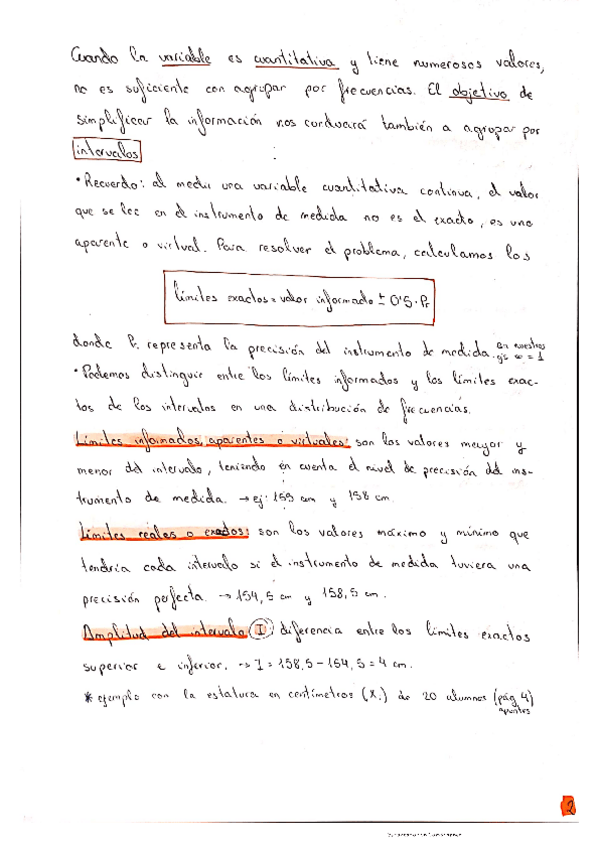 Cuando la variable es cuantitativa y tiene numerosos valores,
no es suficiente con agrupar por frecuencias. El objetivo de
simplificar la información nos conducirá también a agrupar por
intervalos
• Recuerdo: al medir una variable cuantitativa continua, el valor
que se lee en el instrumento de medida no es el exacto, es uno
aparente o virtual. Para resolver el problema, calculamos los
límites exactos = valor informado ± 0'5 · Pr
donde Pr representa la precisión del instrumento de medida. en nuestros
ejs = 1
• Podemos distinguir entre los límites informados y los límites exac-
tos de los intervalos en una distribución de frecuencias.
Límites informados, aparentes o virtuales: son los valores mayor y
menor del intervalo, teniendo en cuenta el nivel de precisión del ins-
trumento de medida. → ej: 155 cm y 158 cm.
Límites reales o exactos: son los valores máximo y mínimo que
tendría cada intervalo si el instrumento de medida tuviera una
precisión perfecta. → 154,5 cm y 158,5 cm.
Amplitud del intervalo (I): diferencia entre los límites exactos
superior e inferior. → I = 158,5 - 154,5 = 4 cm.
* ejemplo con la estatura en centímetros (X.) de 20 alumnos (pág 4)
apuntes
2